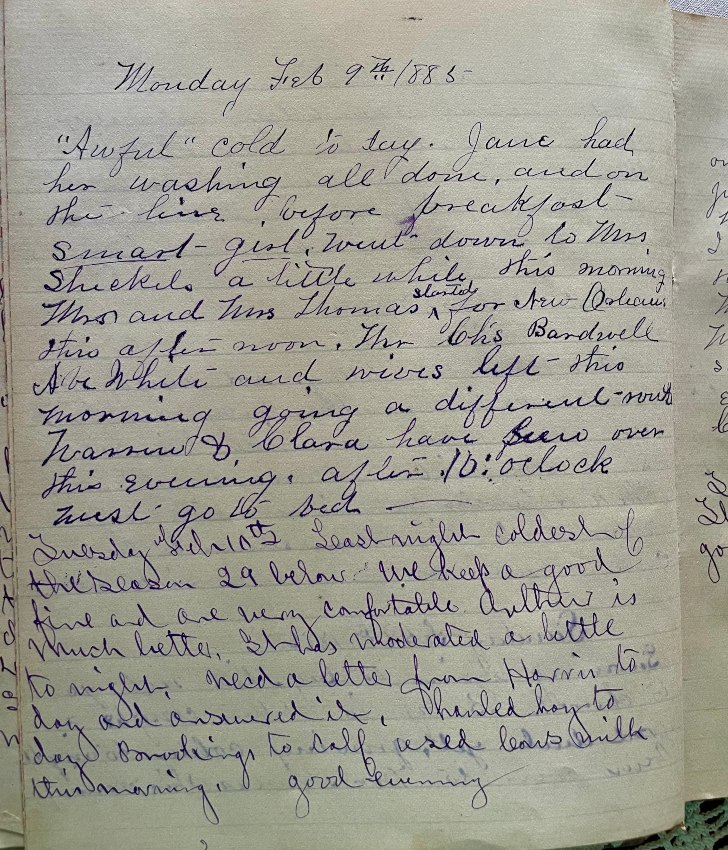 Monday Feb 9th 1885
"Awful" cold to day. Jane had
her washing all done, and on
the line before breakfast
smart girl. Went down to Mrs
Stuckels a little while this morning
Mrs and Mrs Thomas started for New Orleans
this after noon. Mr Ch's Bardwell
Abe White and wives left this
morning going a different rout
Warren & Clara have been over
this evening. after 10: oclock
must go to bed
Tuesday Feb 10th Least night coldest of
the season 29 below We keep a good
fire and are very comfortable Arthur is
much better. It has moderated a little
to night. recd a letter from Harris to
day and answered it. hauled hay to
day Brookings to calf used cows milk
this morning. good evening